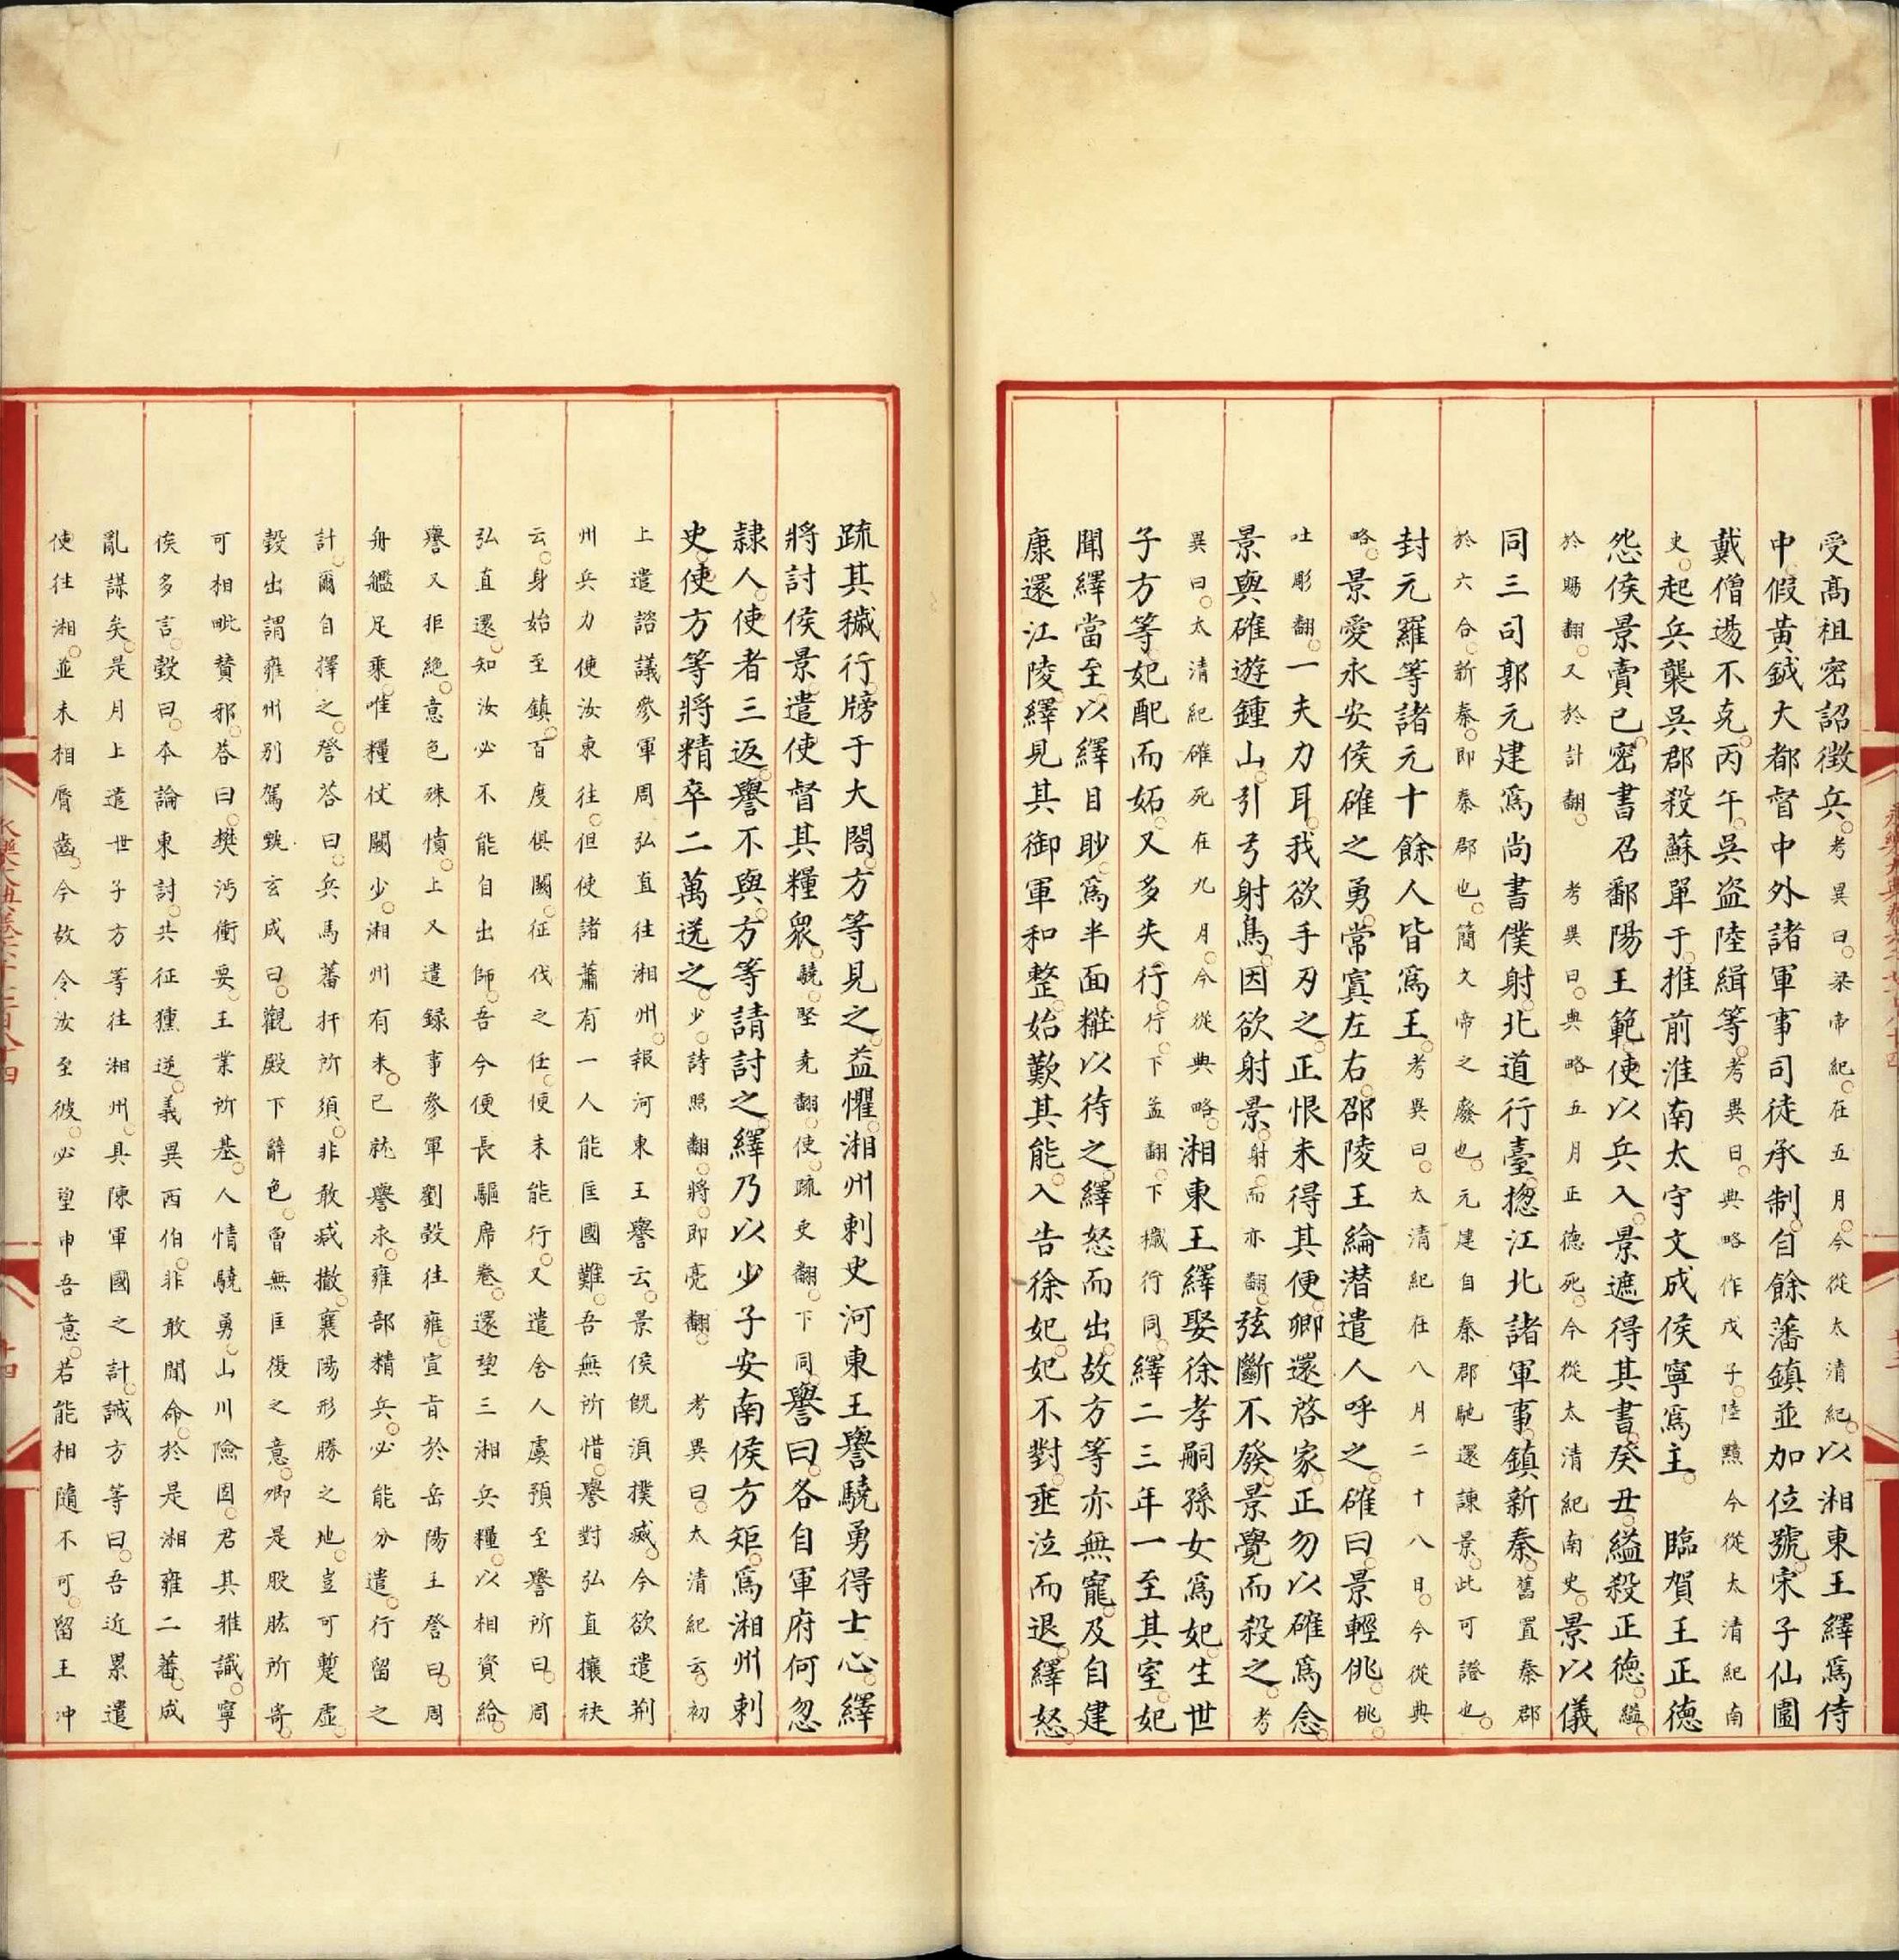 受髙祖密詔徴兵。考異曰。梁帝紀。在五月。今從太清紀。以湘東王繹爲侍
中。假黃鉞大都督中外諸軍事司徒承制。自餘藩鎮並加位號。宋子仙圍
戴僧逷不克。丙午。吳盗陸緝等。考異曰。典略作戊子。陸黯今從太清紀南
史。起兵襲吳郡殺蘇單于。推前淮南太守文成侯寧爲主。　臨賀王正德
怨侯景賣已。密書召鄱陽王範使以兵入。景遮得其書。癸丑。縊殺正德。縊。
於賜翻。又於計翻。　考異曰。典略五月正德死。今從太清紀南史。景以儀
同三司郭元建爲尚書僕射。北道行臺揔江北諸軍事。鎮新秦。舊置秦郡
於六合。新秦。即秦郡也。簡文帝之廢也。元建自秦郡馳還諫景。此可證也。
封元羅等諸元十餘人皆爲王。考異曰。太清紀在八月二十八日。今從典
略。景愛永安侯確之勇。常寘左右。邵陵王綸潜遣人呼之。確曰。景輕佻。佻。
吐彫翻。一夫力耳。我欲手刃之。正恨未得其便。卿還啓家。正勿以確爲念。
景與確遊鍾山。引弓射鳥。因欲射景。射。而亦翻。弦斷不發。景覺而殺之。考
異曰。太清紀確死在九月。今從典略。湘東王繹娶徐孝嗣孫女爲妃。生世
子方等。妃配而妬。又多失行。行。下孟翻。下穢行同。繹二三年一至其室。妃
聞繹當至。以繹目眇。爲半面糚以待之。繹怒而出。故方等亦無寵。及自建
康還江陵。繹見其御軍和整。始歎其能。入告徐妃。妃不對。垂泣而退。繹怒。
疏其穢行。牓于大閤。方等見之。益懼。湘州刺史河東王譽驍勇得士心。繹
將討侯景。遣使督其糧衆。驍。堅堯翻。使。疏吏翻。下同。譽曰。各自軍府何忽
隸人。使者三返。譽不與。方等請討之。繹乃以少子安南侯方矩。爲湘州刺
史。使方等將精卒二萬送之。少。詩照翻。將。即亮翻。　考異曰。太清紀云。初
上遣諮議參軍周弘直往湘州。報河東王譽云。景侯旣湏撲滅。今欲遣荆
州兵力使汝東往。但使諸蕭有一人能匡國難。吾無所惜。譽對弘直攘袂
云。身始至鎮。百度俱闕。征伐之任。便未能行。又遣舍人虞預至譽所曰。周
弘直還。知汝必不能自出師。吾今便長驅席卷。還望三湘兵糧。以相資給。
譽又拒絶。意色殊憤。上又遣録事參軍劉瑴往雍。宣旨於岳陽王詧曰。周
舟艦足乘。唯糧仗闕少。湘州有米。已就譽求。雍部精兵。必能分遣。行留之
計。爾自擇之。詧荅曰。兵馬蕃扞所須。非敢减撤。襄陽形勝之地。豈可蹔虛。
瑴出謂雍州别駕甄玄成曰。觀殿下辭色。曾無匡復之意。卿是股肱所寄。
可相毗賛邪。荅曰。樊沔衝要。王業所基。人情驍勇。山川險固。君其雅識。寧
俟多言。瑴曰。本論東討。共征獯逆。義異西伯。非敢聞命。於是湘雍二蕃。成
亂謀矣。是月上遣世子方等往湘州。具陳軍國之計。誠方等曰。吾近累遣
使往湘。並未相脣齒。今故令汝至彼。必望申吾意。若能相隨不可。留王冲